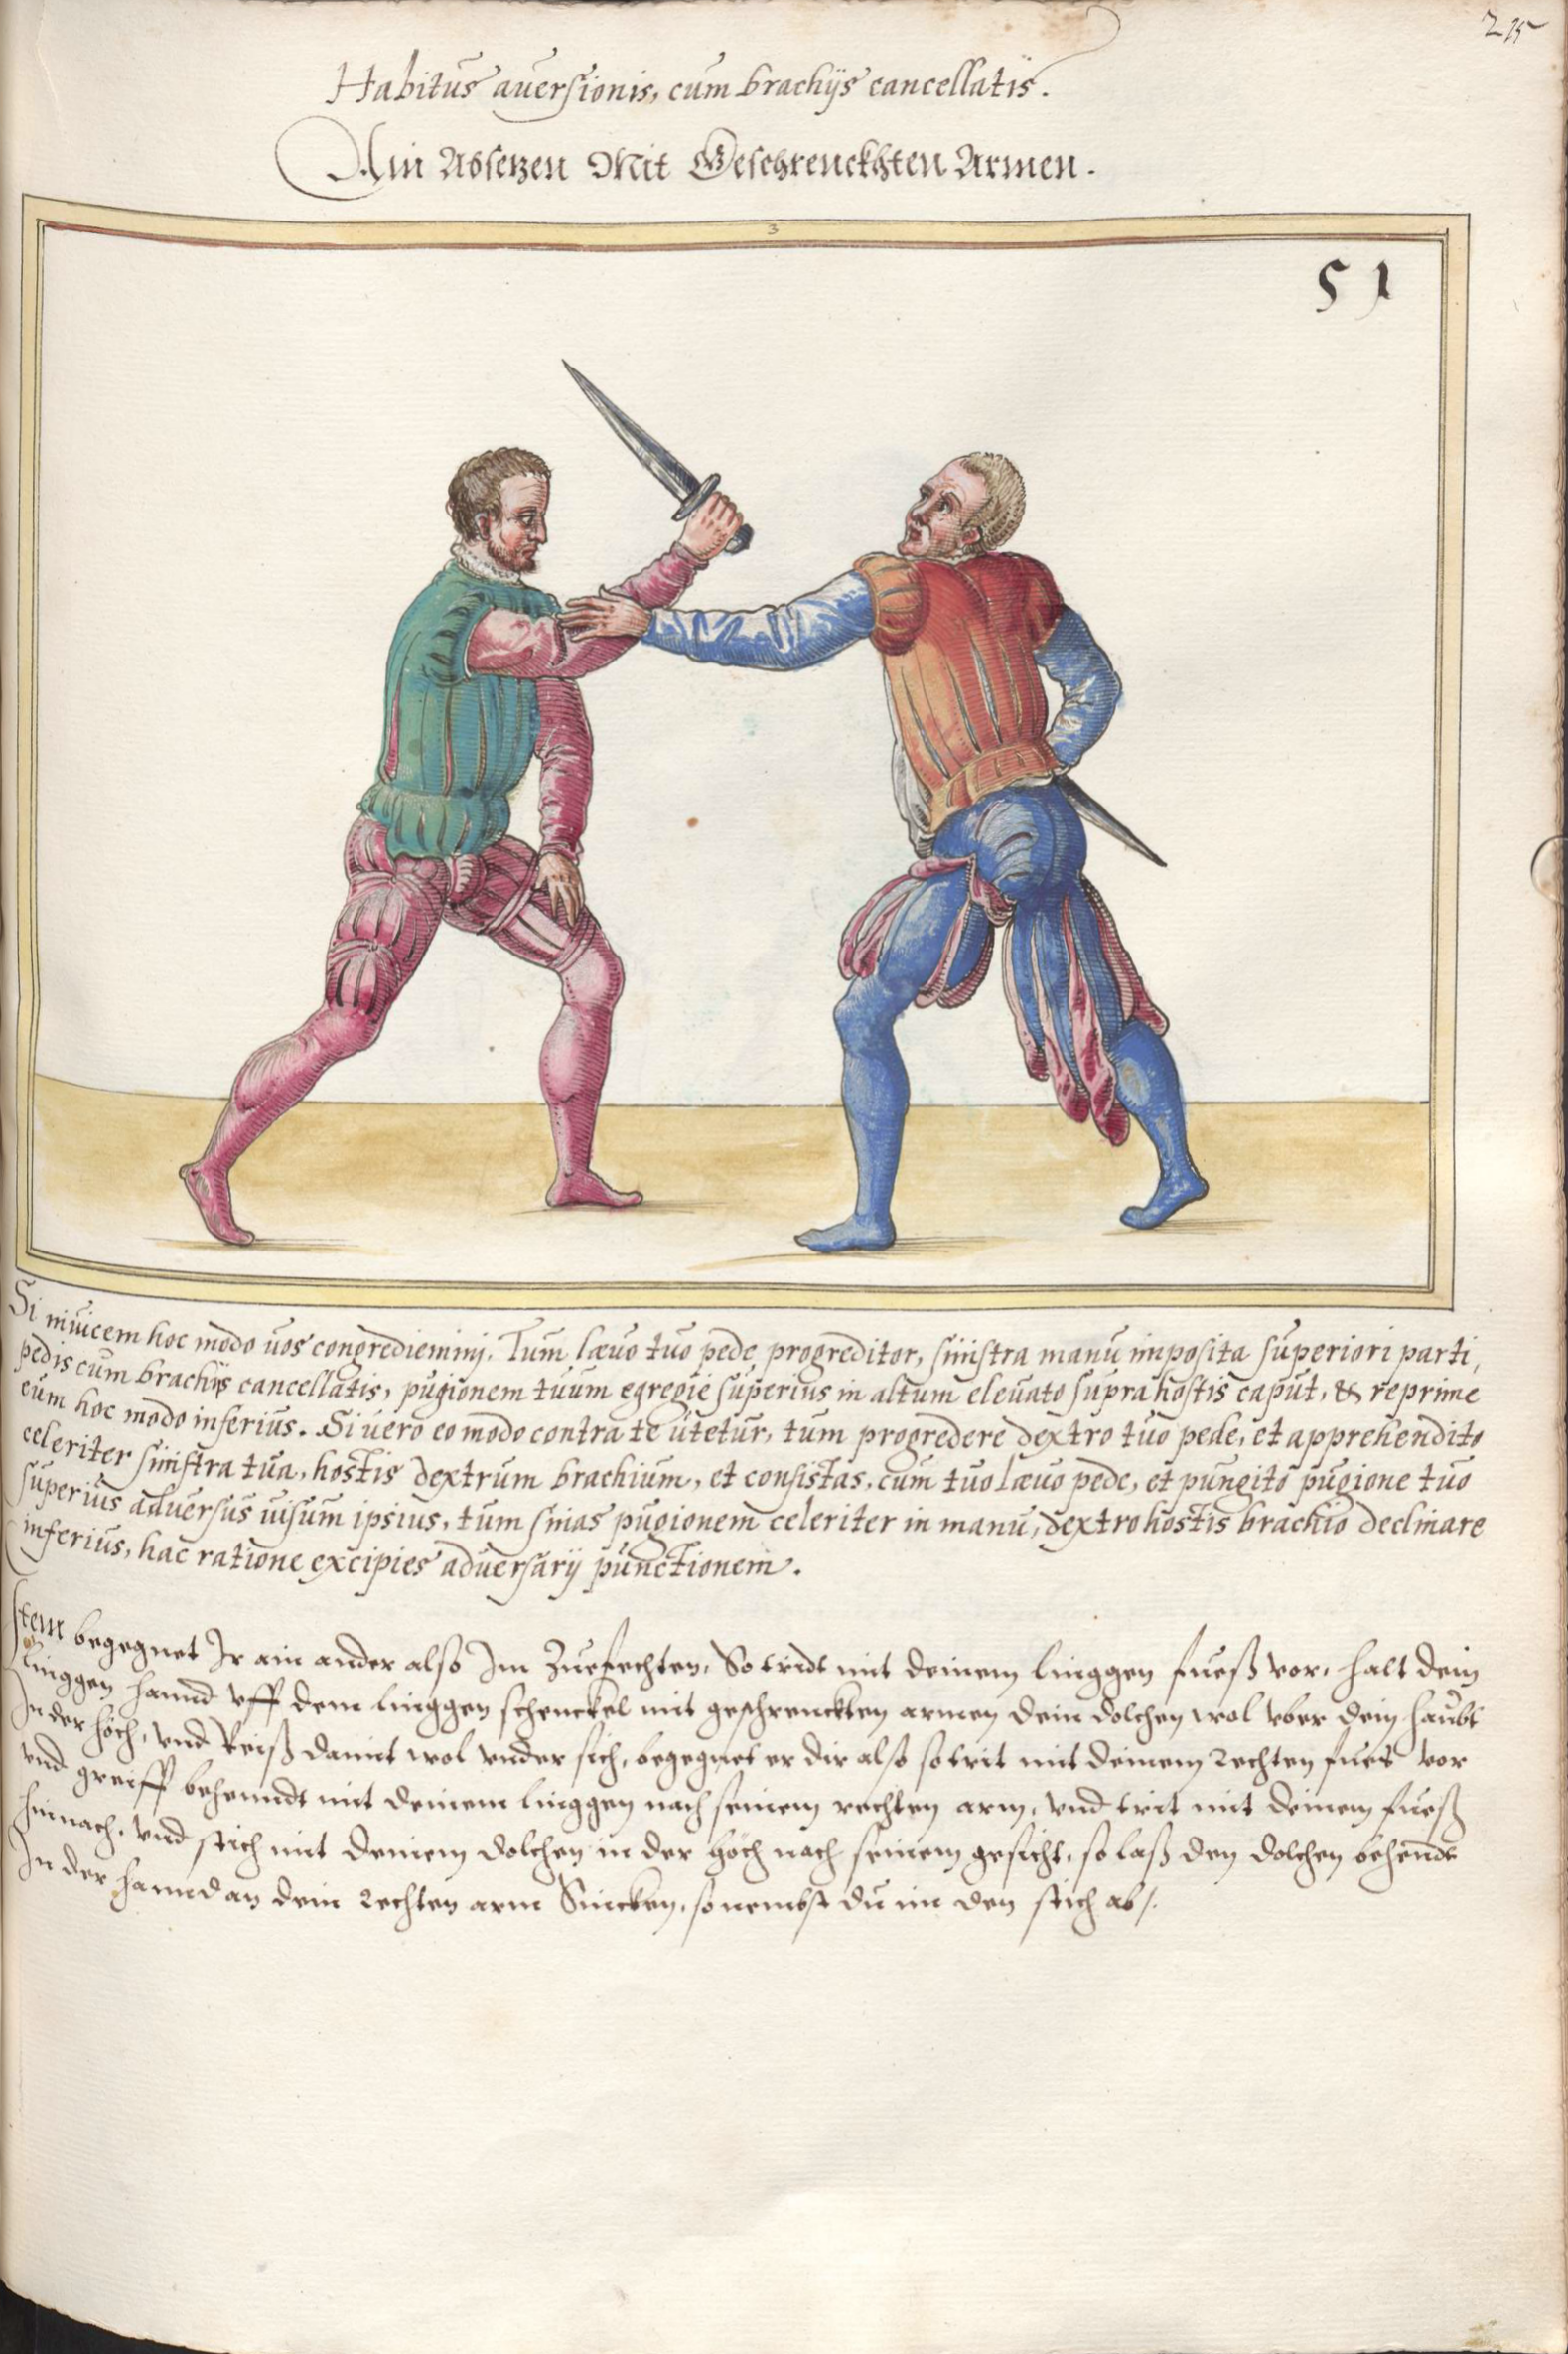 215
Habitus auersionis, cum brachijs cancellatis.
Ain Absetzen Mit Geschrenckhten Armen.
3
51
Si inuicem hoc modo uos congrediemini. Tum læuo tuo pede progreditor, sinistra manu imposita superiori parti,
pedis cum brachijs cancellatis, pugionem tuum egregie superius in altum eleuato supra hostis caput, & reprime
eum hoc modo inferius. Si uero eo modo contra te utetur, tum progredere dextro tuo pede, et apprehendito
celeriter sinistra tua, hostis dextrum brachium, et consistas, cum tuo læuo pede, et pungito pugione tuo
superius aduersus uisum ipsius, tum sinas pugionem celeriter in manu, dextro hostis brachio declinare
inferius, hac ratione excipies aduersarij punctionem.
Item begegnet Ir ain ander also Im Zuefechten, So tridt mit deinem linggen fueß vor, halt dein
linggen hannd vff dem linggen schenckel mit geschrenckten armen dein dolchen wol vber dein haubt
In der höch, vnd Reiß damit wol vnder sich, begegnet er dir also so trit mit deinem Rechten fues vor
vnd greiff behenndt mit deinem linggen nach seinem rechten arm, vnd trit mit deinem fueß
hinnach, vnd stich mit deinem dolchen in der höch nach seinem gesicht, so laß den dolchen behendt
In der hannd an dein Rechten arm Sincken, so nembst du im den stich ab/.